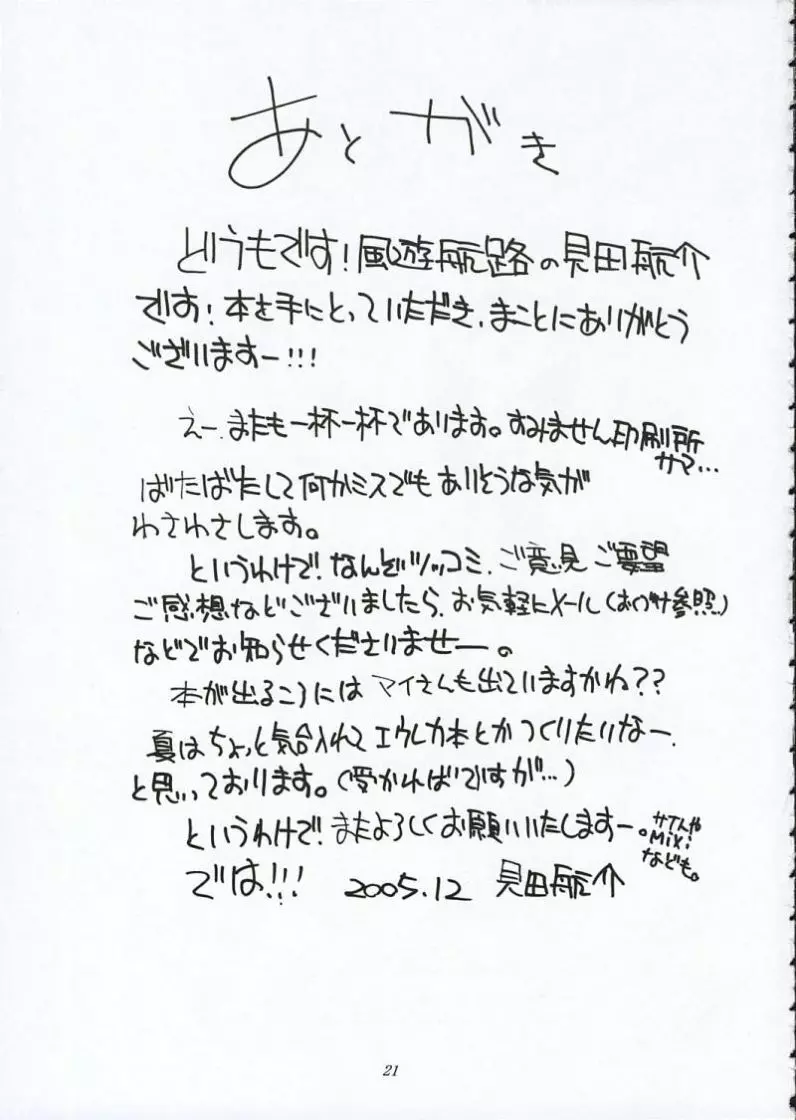 あとがき
どうもです！風遊航路の見田航介
です！本を手にとっていただき、まことにありがとう
ございますー!!!
えー、またも一杯一杯であります。すみません印刷所
サマ…
ばたばたして何かミスでもありそうな気が
わさわさします。
というわけで！なんぞツッコミ、ご意見ご要望
ご感想などございましたら、お気軽にメール(おくづけ参照)
などでお知らせくださいませー。
本が出るころにはマイさんも出ていますかね??
夏はちょっと気合入れてエウレカ本とかつくりたいなー、
と思っております。(受かればですが…)
というわけで！またよろしくお願いいたしますー。
サイトや
Mixi
なども。
では!!! 2005.12 見田航介
21